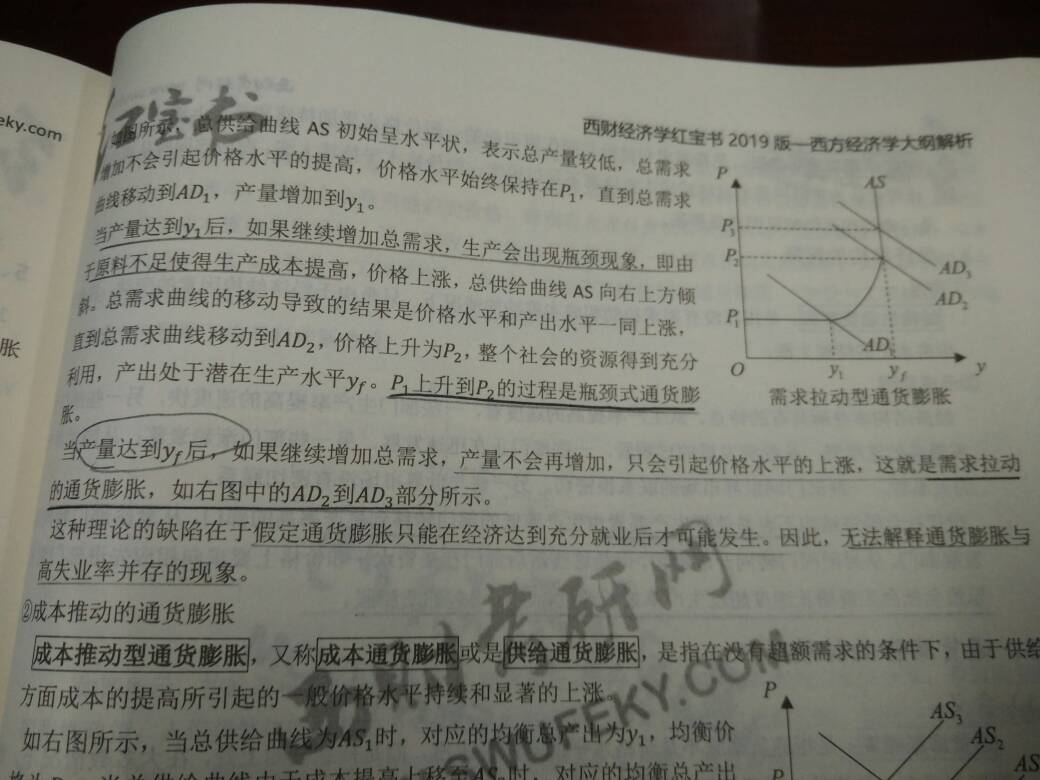 eky.com
胀
红宝书
西财经济学红宝书 2019 版—西方经济学大纲解析
如图所示，总供给曲线 AS 初始呈水平状，表示总产量较低，总需求
增加不会引起价格水平的提高，价格水平始终保持在P₁，直到总需求
曲线移动到AD₁，产量增加到y₁。
当产量达到y₁后，如果继续增加总需求，生产会出现瓶颈现象，即由
于原料不足使得生产成本提高，价格上涨，总供给曲线 AS 向右上方倾
斜。总需求曲线的移动导致的结果是价格水平和产出水平一同上涨，
直到总需求曲线移动到AD₂，价格上升为P₂，整个社会的资源得到充分
利用，产出处于潜在生产水平y_f。P₁上升到P₂的过程是瓶颈式通货膨
胀。
P
AS
P₃
P₂
AD₃
AD₂
P₁
AD₁
O
y₁
y_f
y
需求拉动型通货膨胀
当产量达到y_f后，如果继续增加总需求，产量不会再增加，只会引起价格水平的上涨，这就是需求拉动
的通货膨胀，如右图中的AD₂到AD₃部分所示。
这种理论的缺陷在于假定通货膨胀只能在经济达到充分就业后才可能发生。因此，无法解释通货膨胀与
高失业率并存的现象。
②成本推动的通货膨胀
成本推动型通货膨胀，又称成本通货膨胀或是供给通货膨胀，是指在没有超额需求的条件下，由于供给
方面成本的提高所引起的一般价格水平持续和显著的上涨。
如右图所示，当总供给曲线为AS₁时，对应的均衡总产出为y₁，均衡价
时，对应的均衡总产出
P
AS₃
AS₂
AS
P
易财考研网
SWUFEKY.COM